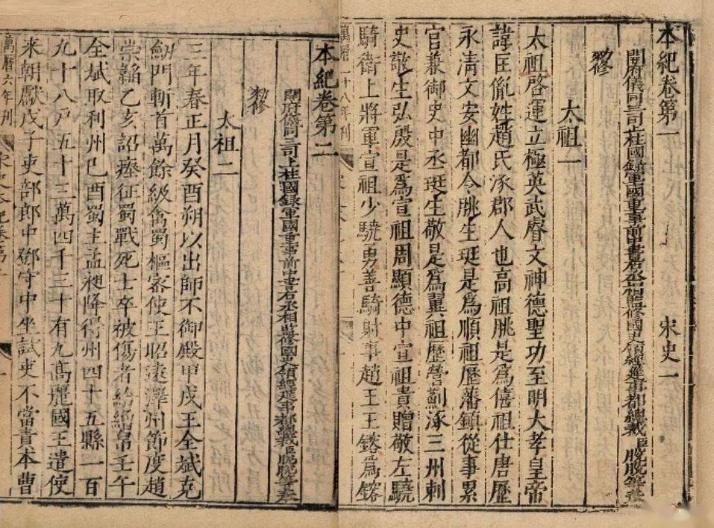 本紀卷第一 宋史一
開府儀同三司上柱國錄軍國重事前中書右丞相監修國史領經筵事都總裁臣脫脫等奉
勑修
太祖一
太祖啓運立極英武睿文神德聖功至明大孝皇帝
諱匡胤姓趙氏涿郡人也高祖朓是爲僖祖仕唐歷
永清文安幽都令朓生珽是爲順祖歷藩鎮從事累
官兼御史中丞珽生敬是爲翼祖歷營薊涿三州刺
史敬生弘殷是爲宣祖周顯德中宣祖貴贈敬左驍
騎衛上將軍宣祖少驍勇善騎射事趙王王鎔爲鎔
萬曆二十八年刊
本紀卷第二
開府儀同三司上柱國錄軍國重事前中書右丞相監修國史領經筵事都總裁臣脫脫等奉
勑修
太祖二
三年春正月癸酉朔以出師不御殿甲戌王全斌克
劒門斬首萬餘級禽蜀樞密使王昭遠澤州節度趙
崇韜乙亥詔瘞征蜀戰死士卒被傷者給繒帛壬午
全斌取利州乙酉蜀主孟昶降得州四十五縣一百
九十八戶五十三萬四千三十有九高麗國王遣使
來朝獻戊子吏部郎中鄧守中坐試吏不當責本曹
萬曆六年刊